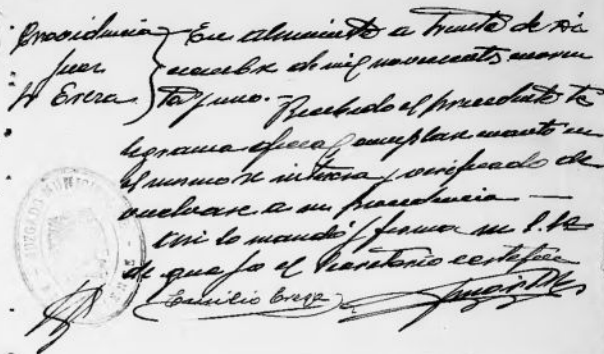 Providencia
Juez
Sr Erera
En Almiñete a treinta de Di
ciembre de mil novecientos cuaren
ta y uno.- Recibido el precedente te
legrama oficial, cumplase cuanto en
el mismo se interesa, y verificado de
vuelvase a su procedencia —
Asi lo mandó y firma su S.Sa
de que yo el Secretario certifico
Emilio Erera
JUZGADO MUNICIPAL